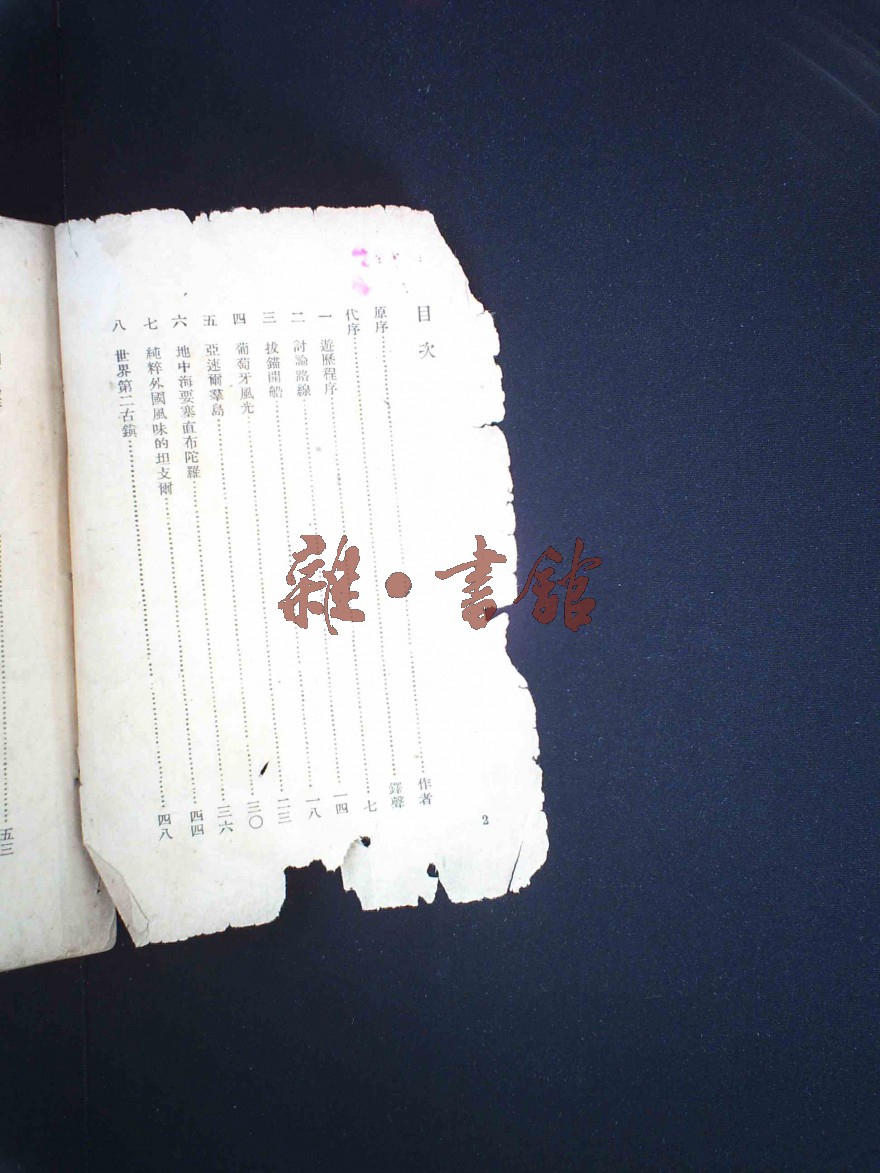 2
目次
原序……作者
代序……鐸聲
一 遊歷程序……七
二 討論路線……一四
三 拔錨開船……一八
四 葡萄牙風光……二三
五 亞速爾羣島……三〇
六 地中海要塞直布陀羅……三六
七 純粹外國風味的坦支爾……四四
八 世界第二古鎮……四八
五三
雜·書館